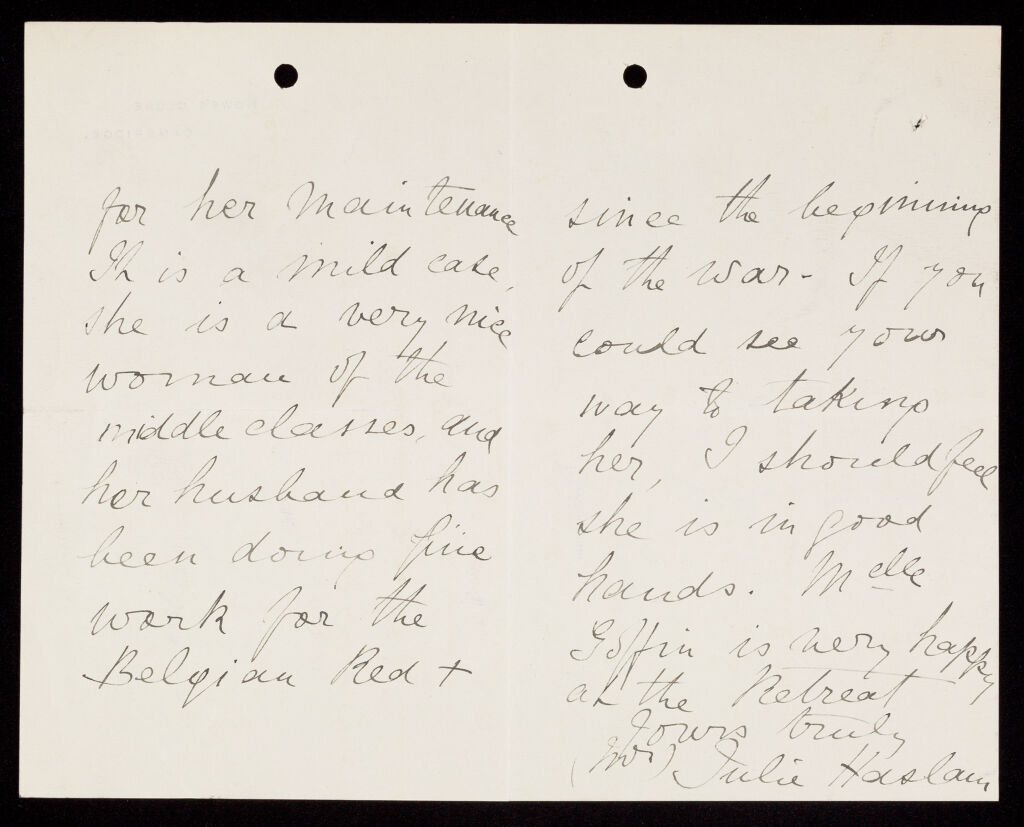 for her maintenance
It is a mild case,
she is a very nice
woman of the
middle classes, and
her husband has
been doing fine
work for the
Belgian Red +
since the beginning
of the war - If you
could see your
way to taking
her, I should feel
she is in good
hands. Melle
Goffin is very happy
at the Retreat
Yours truly
(Mrs) Julie Haslam